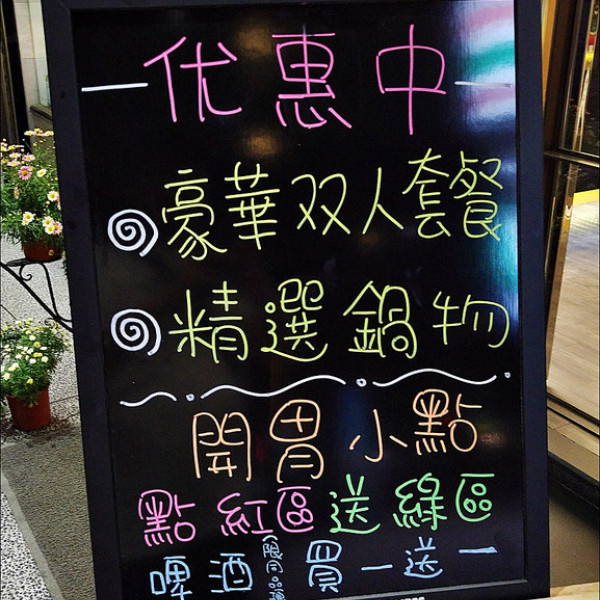 一优惠中一
豪華双人套餐
精選鍋物
開胃小點
點紅區送綠區
啤酒(限同品項)買一送一